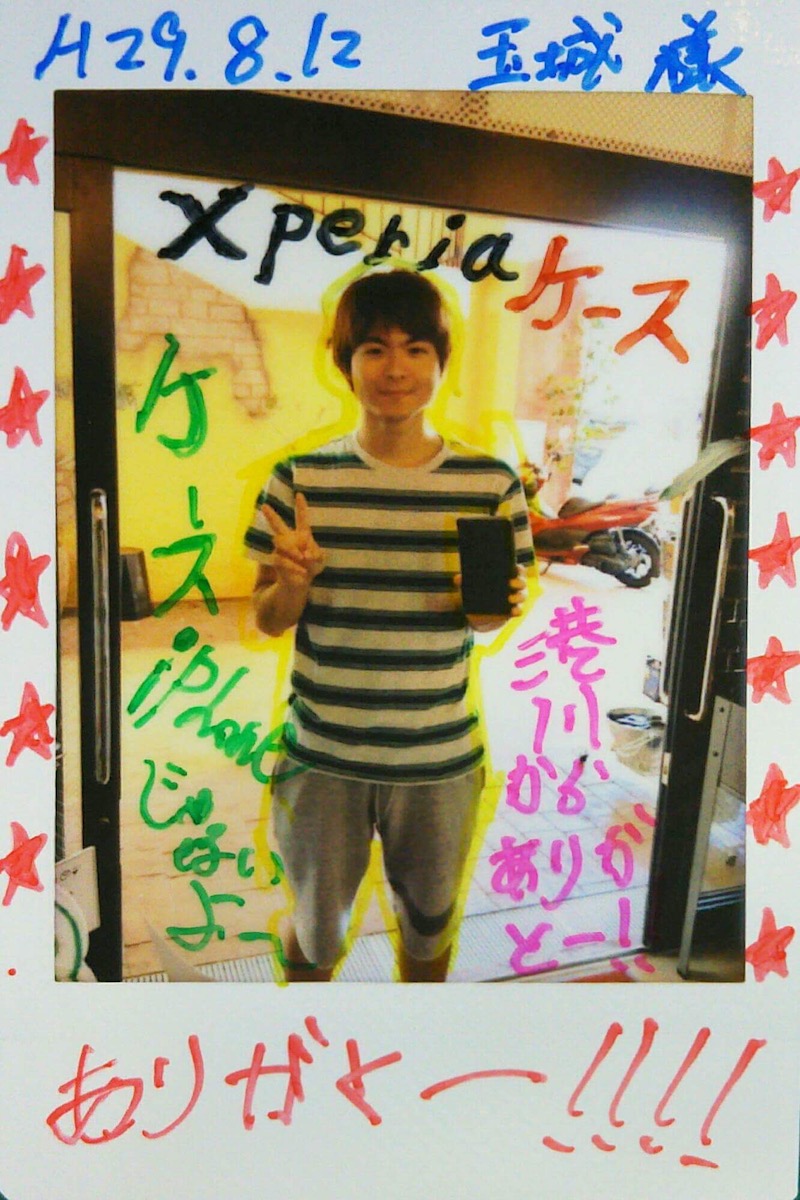 H29.8.12 玉城 様
Xperia
ケース
ケース
iPhone
じゃない
よー
港川
から
ありが
とー!!
ありがとー!!!!